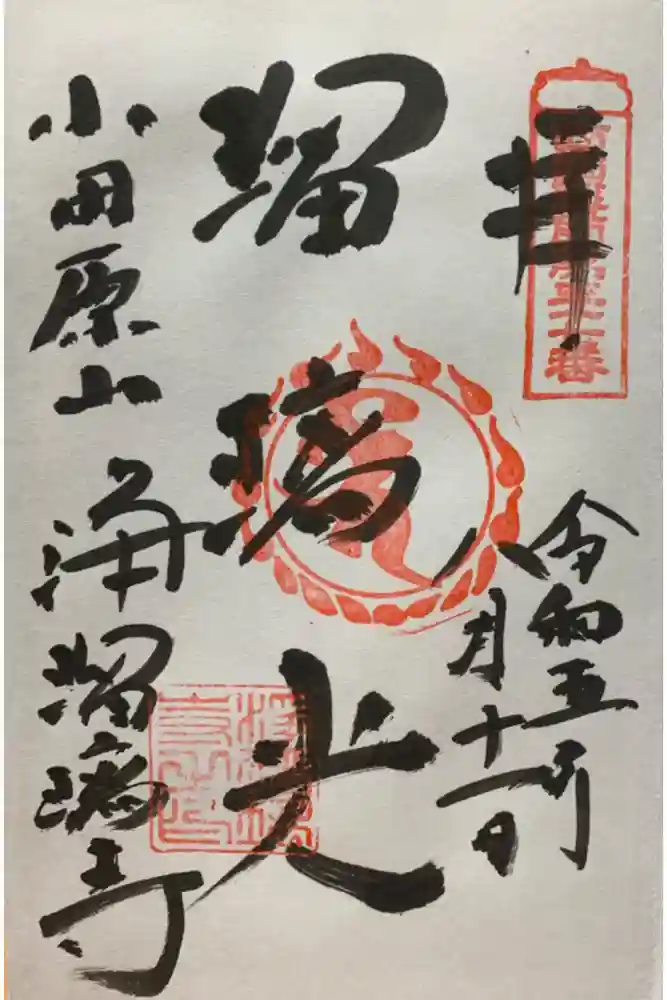 拝
令和五年
八月十一日
瑠璃光
小田原山 浄瑠璃寺